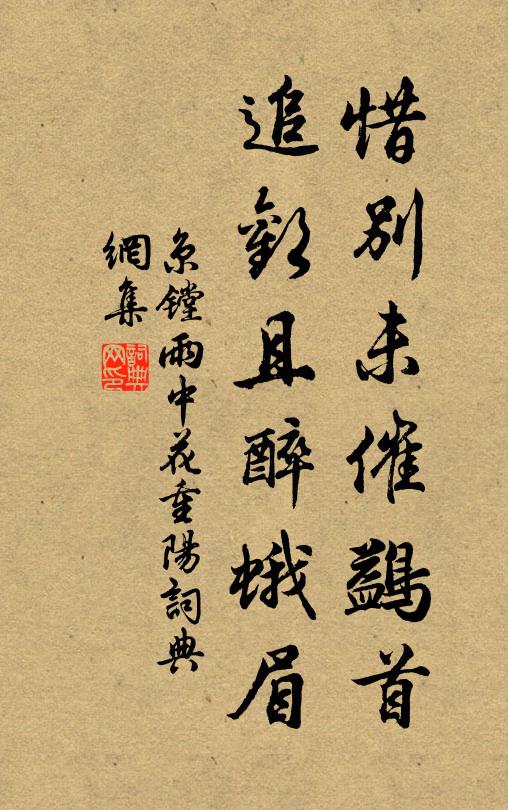 惜別未催鷁首
追歡且醉蛾眉
京鏜雨中花重陽詞典
網集
詞典網印